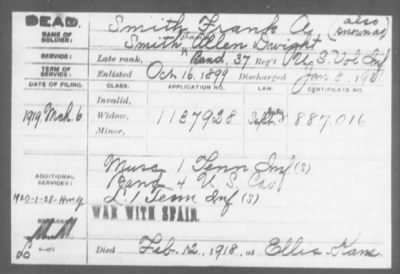 DEAD.
NAME OF SOLDIER:
Smith, Frank A. (also known as)
Smith, Allen Dwight
SERVICE:
Late rank, Band, 37 Reg't U.S. Vol Inf
TERM OF SERVICE:
Enlisted Oct 16, 1899 Discharged Jan 8, 190
DATE OF FILING. CLASS. APPLICATION NO. LAW. CERTIFICATE NO.
Invalid,
1919 Mch 6 Widow, 1137928 887,016
Minor,
ADDITIONAL SERVICES:
Musc 1 Tenn Inf (S)
Band 4 U.S. Cav
L 1 Tenn Inf (S)
WAR WITH SPAIN.
Died Feb. 12, 1918, at Ellis, Kans